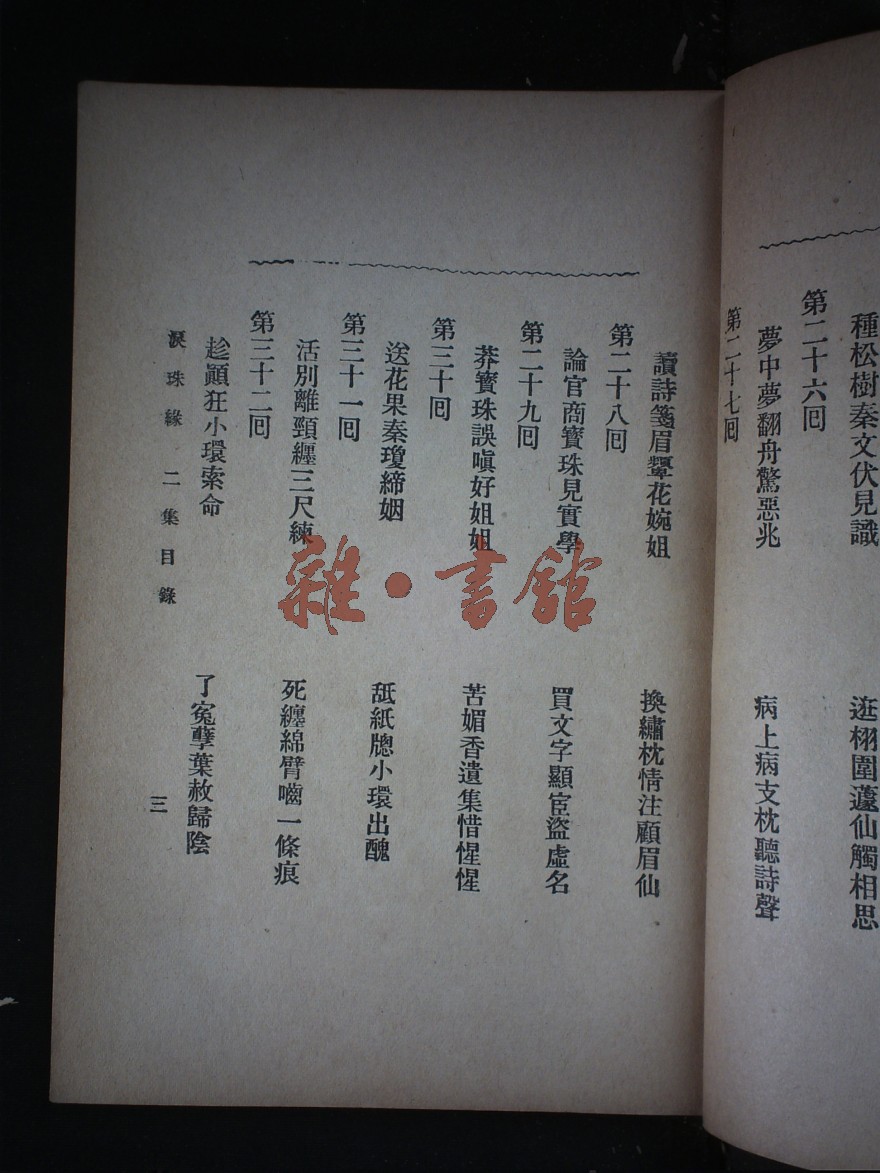 種松樹秦文伏見識
逛栩園蘧仙觸相思
第二十六回
夢中夢翻舟驚惡兆
病上病支枕聽詩聲
第二十七回
讀詩箋眉顰花婉姐
換繡枕情注顧眉仙
第二十八回
論官商寶珠見實學
買文字顯宦盜虛名
第二十九回
莽寶珠誤嗔好姐姐
苦媚香遺集惜惺惺
第三十回
送花果秦瓊締姻
舐紙牕小環出醜
第三十一回
活別離頸纏三尺練
死纏綿臂嚙一條痕
第三十二回
趁顚狂小環索命
了寃孽葉赦歸陰
淚珠緣 二集目錄
三
雜·書館